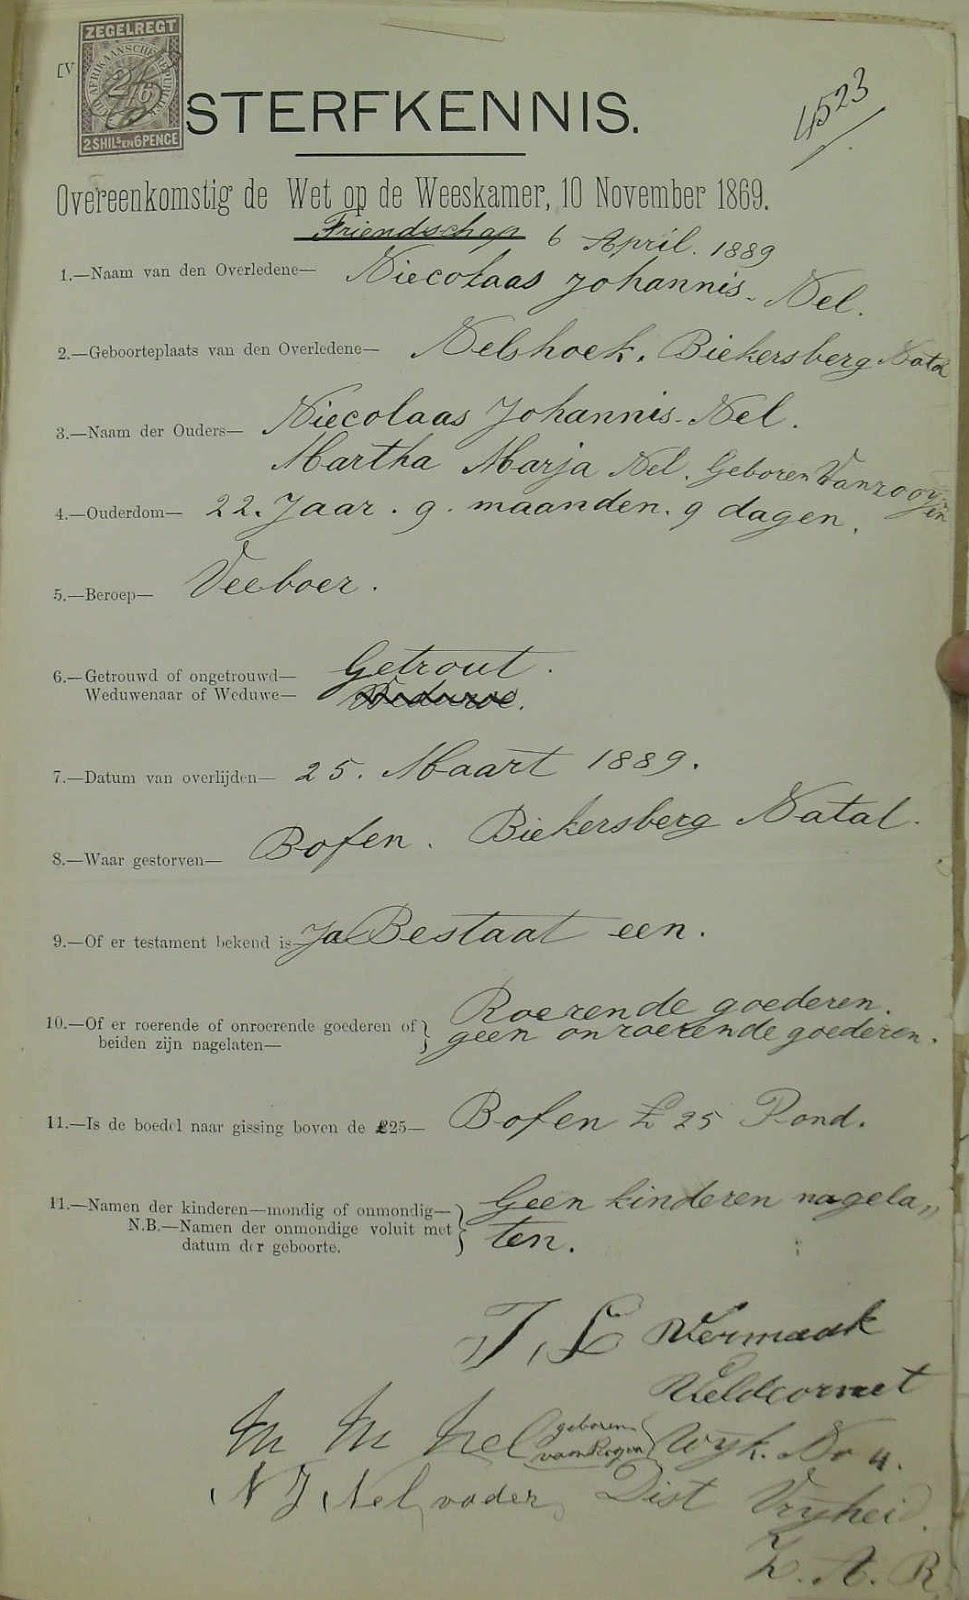 ZEGELREGT
2/6
2 SHILS EN 6 PENCE
STERFKENNIS.
4523
Overeenkomstig de Wet op de Weeskamer, 10 November 1869.
Friendschap 6 April. 1889
1.—Naam van den Overledene— Niecolaas Johannis. Nel.
2.—Geboorteplaats van den Overledene— Nelshoek. Biekersberg Natal
3.—Naam der Ouders— Niecolaas Johannis. Nel.
Martha Marja Nel. Geboren Vanrooyen
4.—Ouderdom— 22. Jaar. 9. maanden. 9 dagen.
5.—Beroep— Veeboer.
6.—Getrouwd of ongetrouwd— Getrout.
Weduwenaar of Weduwe— Weduwe.
7.—Datum van overlijden— 25. Maart 1889.
8.—Waar gestorven— Bofen. Biekersberg Natal.
9.—Of er testament bekend is— Ja Bestaat een.
10.—Of er roerende of onroerende goederen of } Roerende goederen.
beiden zijn nagelaten— geen onroerende goederen.
11.—Is de boedel naar gissing boven de £25— Bofen £ 25 Pond.
11.—Namen der kinderen—mondig of onmondig— } Geen kinderen nagela„
N.B.—Namen der onmondige voluit met ten.
datum der geboorte.
J. L Vermaak
Veldcornet
M M Nel geboren van Royen Wyk. No 4.
N J Nel vader Dist Vryheid.
Z. A. R.